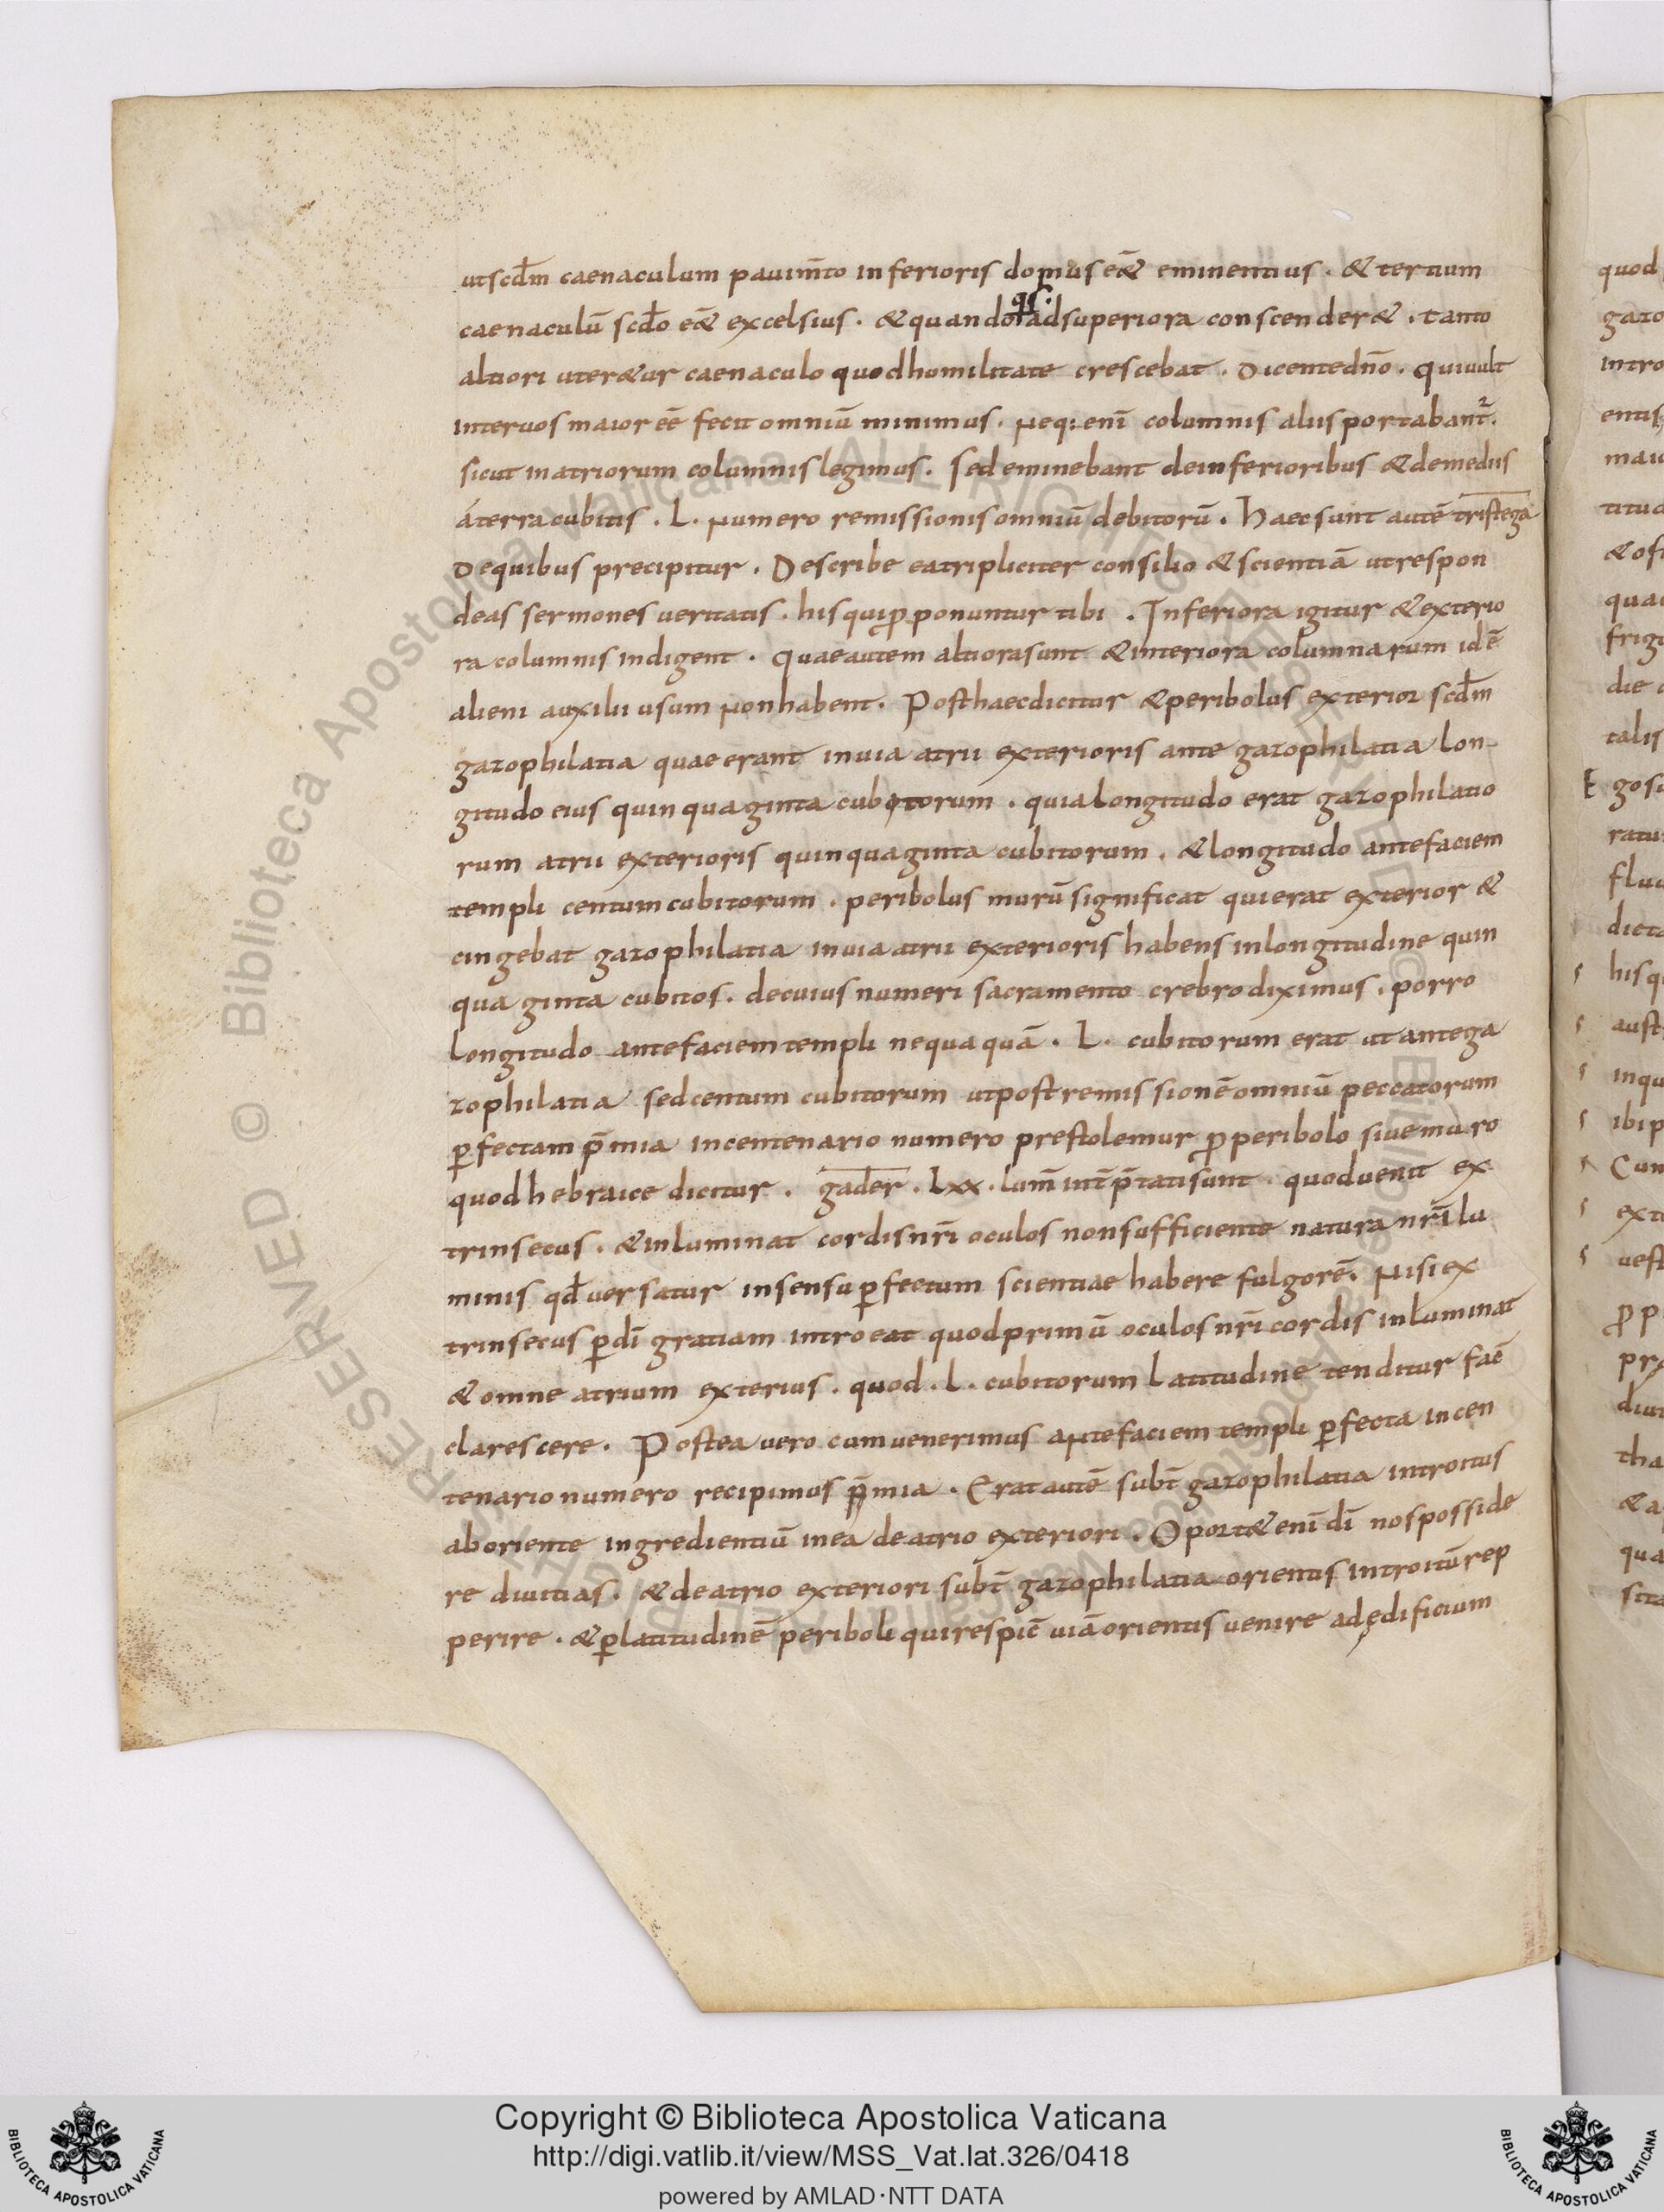 utscd̄m caenaculum pauim̄to inferioris domus eē& eminentius · & tertium
qs·
caenaculū scd̄o eē& excelsius · & quando ad superiora conscender& · tanto
altiori uter&ur caenaculo quod humilitate crescebat · Dicente dn̄o · qui uult
inter uos maior eē fecit omniū minimus · Neq; enī columnis aliis portabant̄·
sicut in atriorum columnis legimus · sed eminebant de inferioribus & de mediis
á terra cubitis · L · Numero remissionis omniū debitorū · Haec sunt autē tristega
De quibus precipitur · Describe ea tripliciter consilio & scientiā ut respon
deas sermones ueritatis · his qui ꝓponuntur tibi · Inferiora igitur & exterio
ra columnis indigent · Quae autem altiora sunt & interiora columnarum idē
alieni auxilii usum Non habent · Post haec dicitur & peribolus exterior scd̄m
gazophilatia quae erant in uia atrii exterioris ante gazophilatia lon-
gitudo eius quinquaginta cubitorum · quia longitudo erat gazophilatio
rum atrii exterioris quinquaginta cubitorum · & longitudo ante faciem
templi centum cubitorum · peribolus murū significat qui erat exterior &
cingebat gazophilatia in uia atrii exterioris habens in longitudine quin
quaginta cubitos · de cuius numeri sacramento crebro diximus · porro
longitudo ante faciem templi nequaquā · L · cubitorum erat ut ante ga
zophilatia sed centum cubitorum ut post remissionē omniū peccatorum
ꝑfectam p̄mia in centenario numero prestolemur ꝓ peribolo siue muro
quod hebraice dicitur · gader · Lxx · lum̄ int̄p̄tati sunt · quod uenit ex
trinsecus · & inluminat cordis nr̄i oculos non sufficiente natura nr̄i lu
minis qd̄ uersatur in sensu ꝑfectum scientiae habere fulgorē · Nisi ex
trinsecus ꝑ dī gratiam introeat quod primū oculos nr̄i cordis inluminat
& omne atrium exterius · quod · L · cubitorum latitudine tenditur fac̄
clarescere · Postea uero cum uenerimus aNte faciem templi ꝑfecta in cen
tenario numero recipimus p̄mia · Erat autē subt̄ gazophilatia introitus
ab oriente ingredientiū in ea de atrio exteriori · Oport& enī dī nos posside
re diuitias · & de atrio exteriori subt̄ gazophilatia orientis introitū rep
perire · & ꝑ latitudinē periboli qui respic̄ uiā orientis uenire ad ędificium
quod
gazo
intro
entis
maio
titud
& ost
quae
frigo
die
talis
E gosu
ratu
fluc
dicta
hisqu
aust
inqu
ibi p
Cum
exte
uest
ꝓ p
pra
diui
tha
& a
qua
sita
© Biblioteca Apostolica Vaticana ALL RIGHTS RESERVED
Copyright © Biblioteca Apostolica Vaticana
http://digi.vatlib.it/view/MSS_Vat.lat.326/0418
powered by AMLAD·NTT DATA
BIBLIOTECA APOSTOLICA VATICANA
BIBLIOTECA APOSTOLICA VATICANA